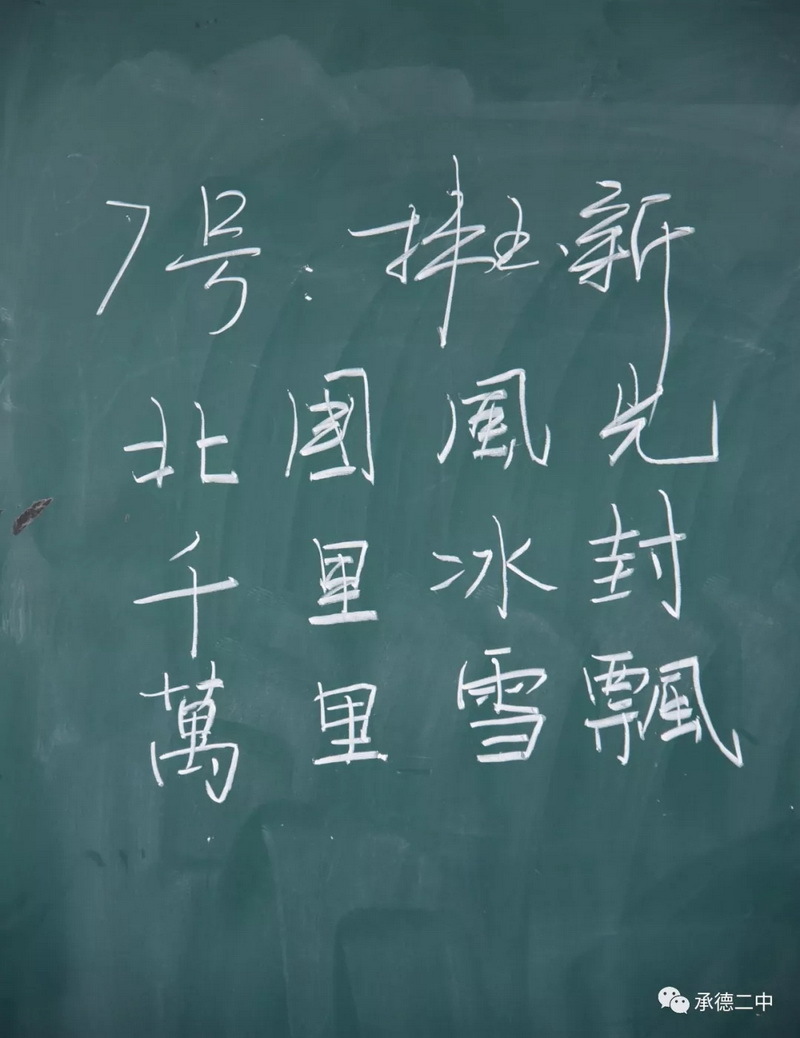 7号:林志新
北國風光
千里冰封
萬里雪飄
承德二中